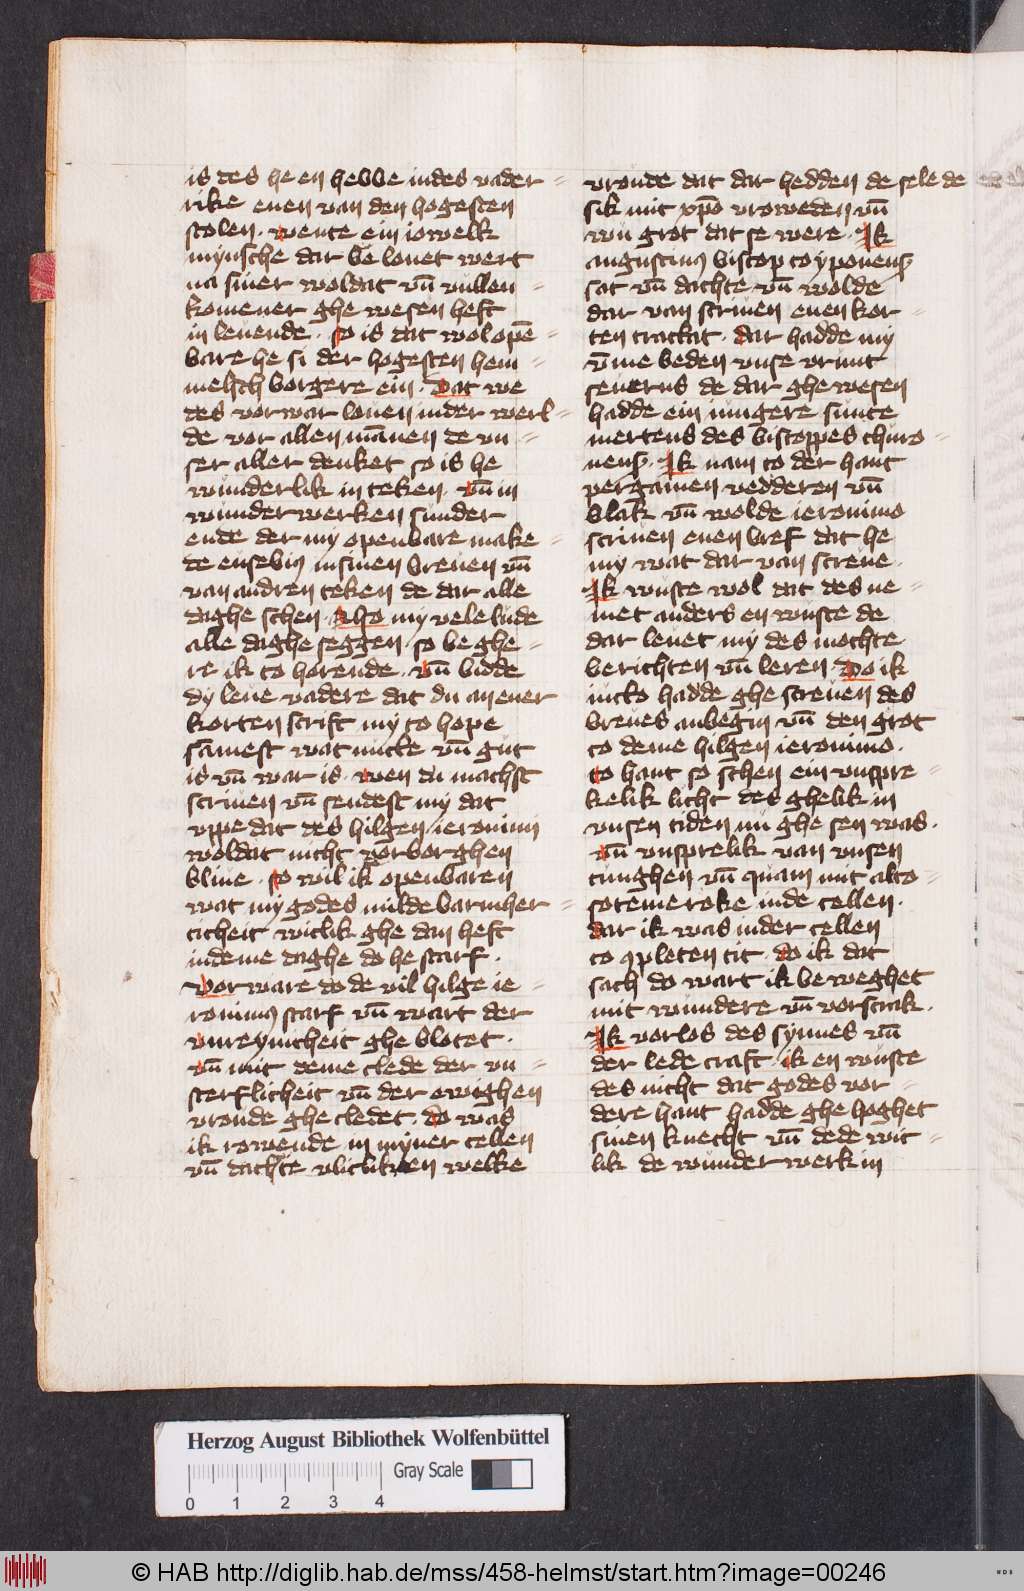 is des he en hebbe indes vader =
rike enen van den hogesten
stolen. wente ein iowelk
mynsche dar be louet wert
na siner woldat vn̄ vullen =
komener ghe wesen heft
in leuende. so is dat wol opē =
bare he si der hogesten hem =
melsch borgere ein. Dat we
des vorwar louen in der werl =
de vor allen mānen de vn =
ser aller denket so is he
wunderlik in teken. vn̄ in
wunder werken sunder
ende der my openbare make =
de eusebiꝰ in sinen breuen vn̄
van andren teken de dar alle
daghe schen. Also my vele lude
alle daghe seggen. so be ghe =
re ik to horende. vn̄ bidde
dy leue vadere dat du an ener
korten scrift my to hope
sāmest wat nutte vn̄ gut
is vn̄ war is. wen du machst
scriuen vn̄ sendest my dat
vppe dat des hilgen ieronimi
woldat nicht vorborghen
bliue. so wil ik openbaren
wat my godes milde barmher =
ticheit witlik ghe dan heft
in deme daghe do he starf.
Vorware do de vil hilge ie =
ronimꝰ starf vn̄ wart der
vnreynicheit ghe blotet.
vn̄ mit deme clede der vn =
sterflicheit vn̄ der ewighen
vroude ghe cledet. do was
ik rowende in myner cellen
vn̄ dachte vlitliken welke
vroude dat dar hedden de sele de
sik mit xpō vroweden vn̄
wu grot dat se were. Ik
augustinꝰ biscop to yponens̄
sat vn̄ dachte vn̄ wolde
dar van scriuen enen kor =
ten tractat. dar hadde my
v̄me beden vnse vrunt
seuerus de dar ghe wesen
hadde ein iungere sunte
mertens des biscoppes thuro =
nens̄. Ik nam to der hant
pergamen vedderen vn̄
blak vn̄ wolde ieronimo
scriuen enen bref dat he
my wat dar van screue.
Ik wuste wol dat des ne =
met anders en wuste de
dar leuet my des mochte
berichten vn̄ leren. Do ik
nicto hadde ghe screuen des
breues anbegin vn̄ den grot
to deme hilgen ieronimo.
to hant so schen ein vnspre =
kelik licht des ghelik in
vnsen tiden nu ghe sen was.
vn̄ vnsprelik van vnsen
tunghen vn̄ quam mit alto =
sotemeroke in de cellen.
dar ik was in der cellen
to ꝯpleten tit. do ik dat
sach do wart ik be weghet
mit wundere vn̄ vorscrak.
Ik vorlos des synnes vn̄
der lede craft. ik en wuste
des nicht dat godes vor =
dere hant hadde ghe hoghet
sinen knecht vn̄ dede wit =
lik de wunder werk in
Herzog August Bibliothek Wolfenbüttel
Gray Scale
0 1 2 3 4
© HAB http://diglib.hab.de/mss/458-helmst/start.htm?image=00246